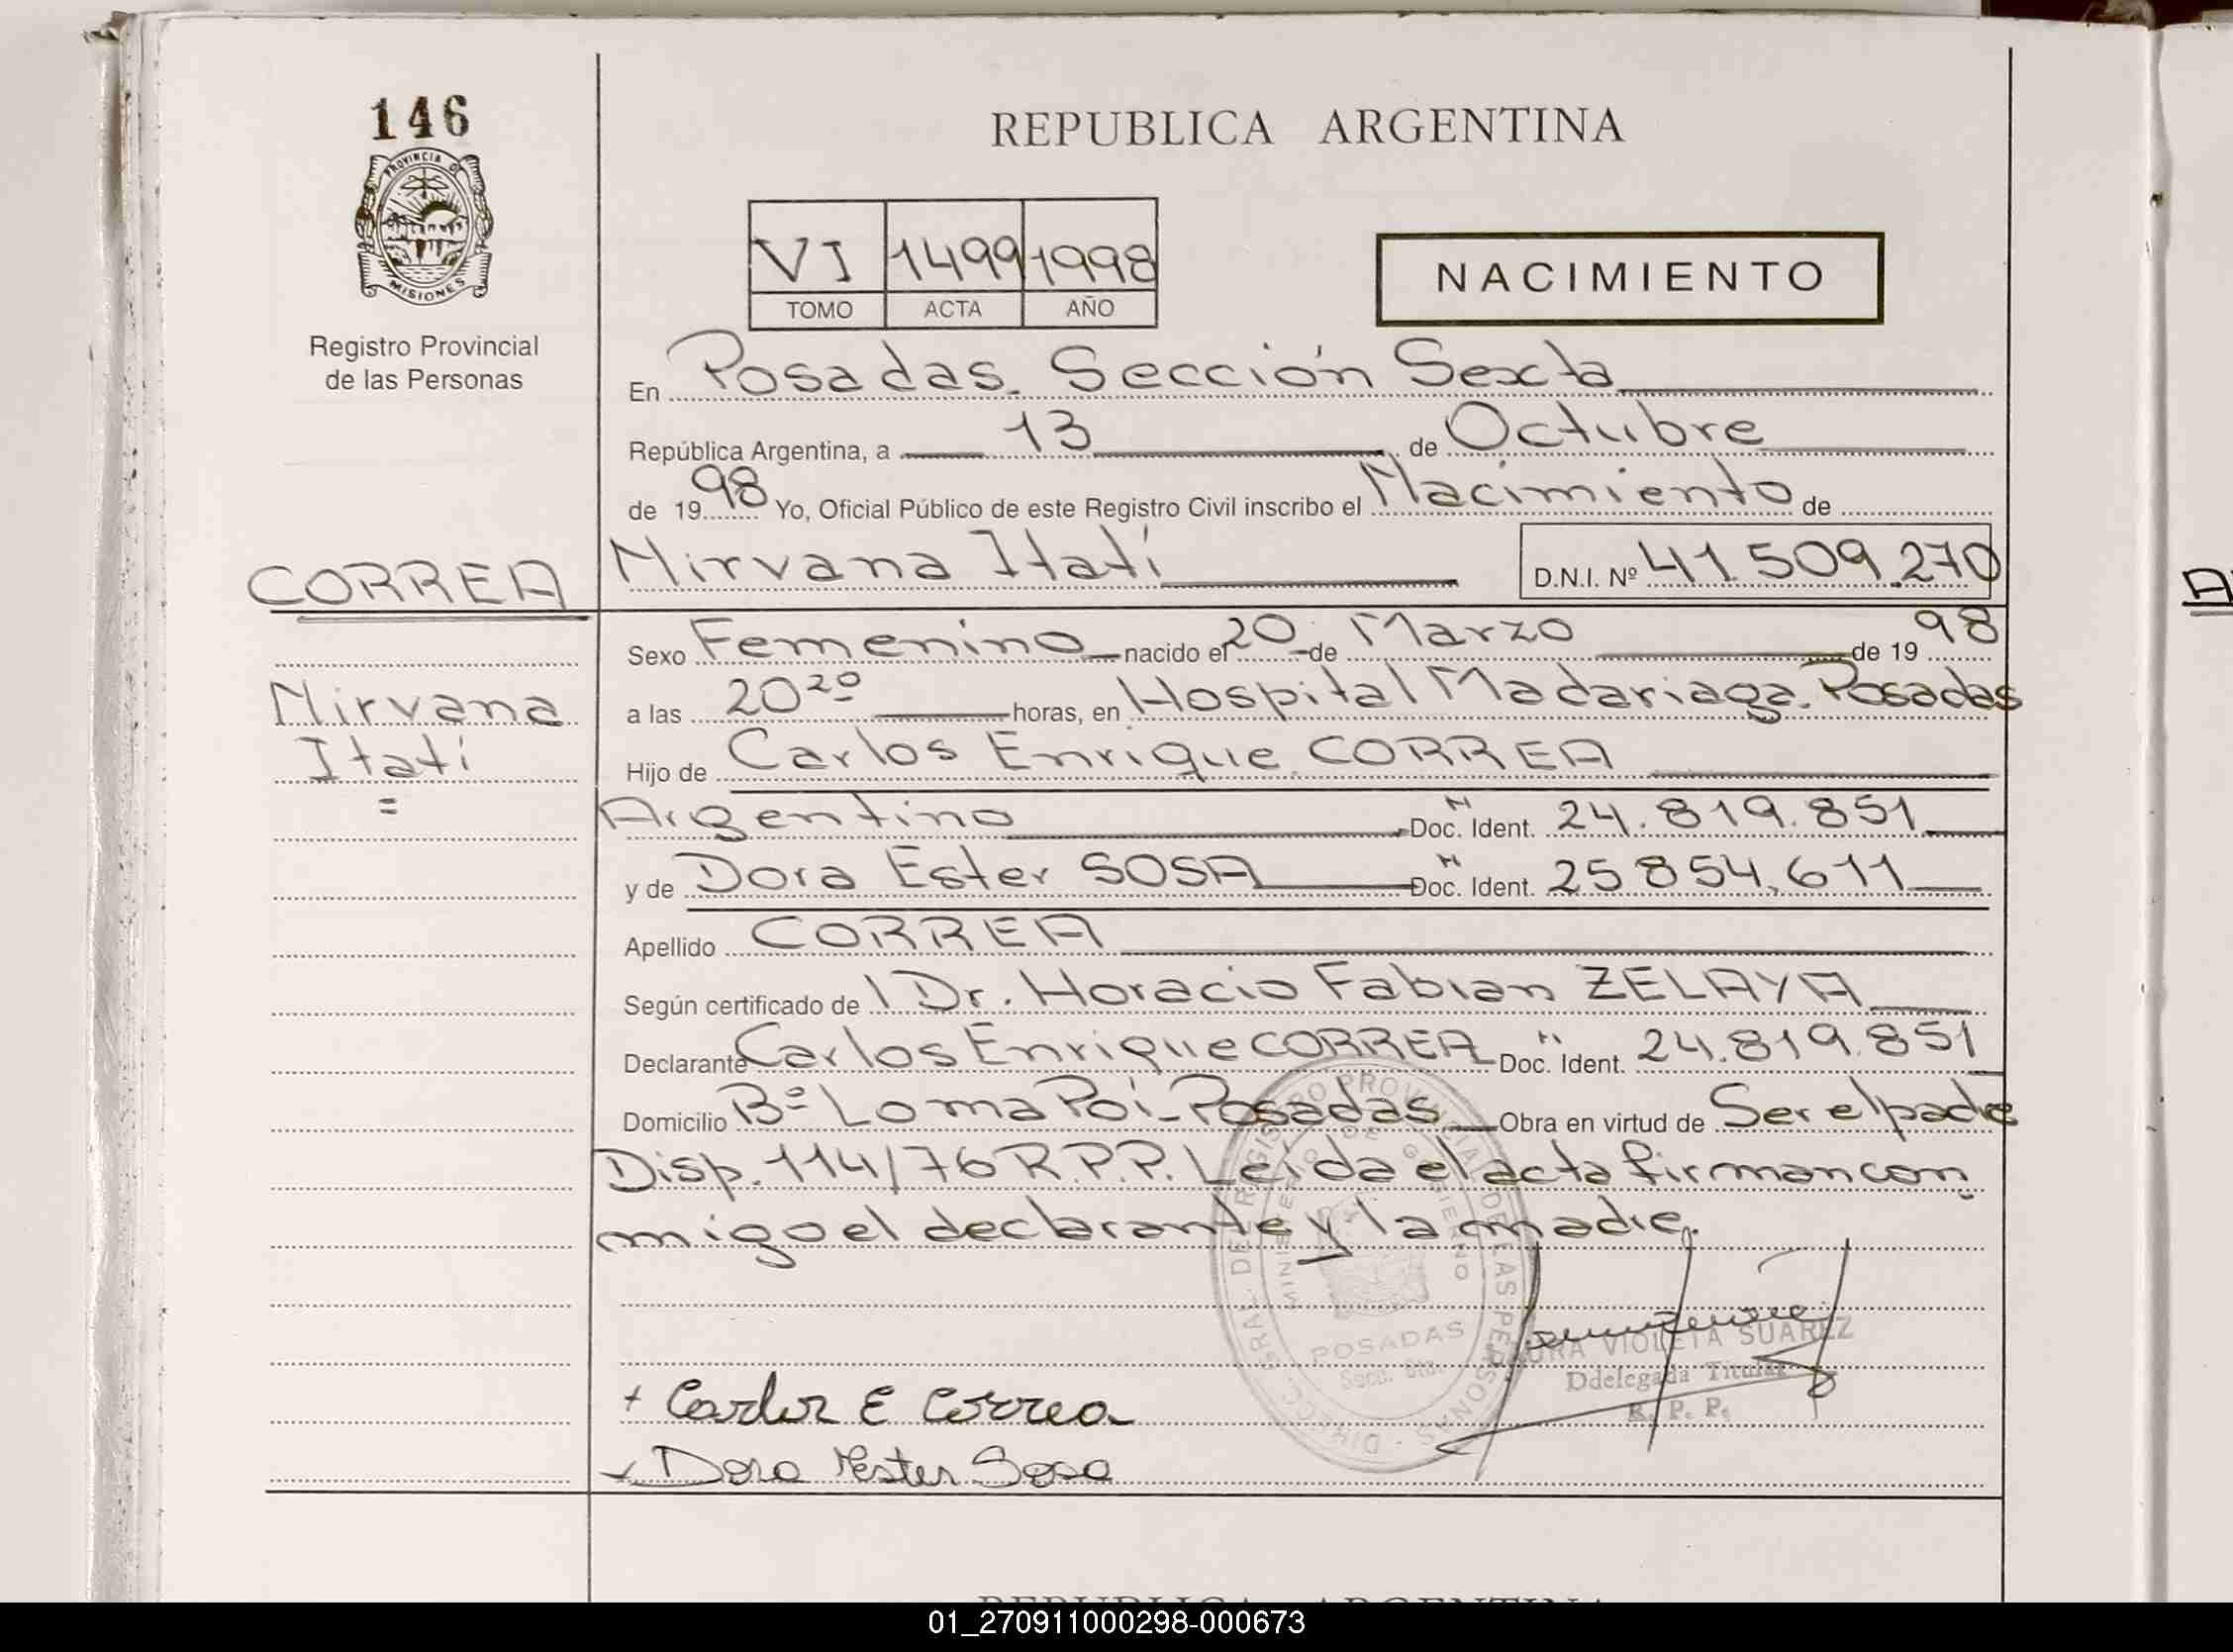 146
PROVINCIA DE
MISIONES
Registro Provincial
de las Personas
REPUBLICA ARGENTINA
VI 1499 1998
TOMO ACTA AÑO
NACIMIENTO
En Posadas. Sección Sexta
República Argentina, a 13 de Octubre
de 1998 Yo, Oficial Público de este Registro Civil inscribo el Nacimiento de
CORREA Nirvana Itatí D.N.I. Nº 41.509.270
Sexo Femenino nacido el 20 de Marzo de 1998
Nirvana a las 20²⁰ horas, en Hospital Madariaga. Posadas
Itatí Hijo de Carlos Enrique CORREA
= Argentino Doc. Ident. 24.819.851
y de Dora Ester SOSA Doc. Ident. 25854.611
Apellido CORREA
Según certificado de l Dr. Horacio Fabian ZELAYA
Declarante Carlos Enrique CORREA Doc. Ident. 24.819.851
Domicilio Bº Loma Poi - Posadas Obra en virtud de Ser el padre
Disp. 114/76 R.P.P. Leída el acta firman con
migo el declarante y la madre.
DIRECC. GRAL. DEL REGISTRO PROVINCIAL DE LAS PERSONAS
MINISTERIO DE GOBIERNO
POSADAS
Secc. 6ta.
LAURA VIOLETA SUAREZ
Ddelegada Titular
R. P. P.
+ Carlos E Correa
Dora Ester Sosa
REPUBLICA ARGENTINA
01_270911000298-000673